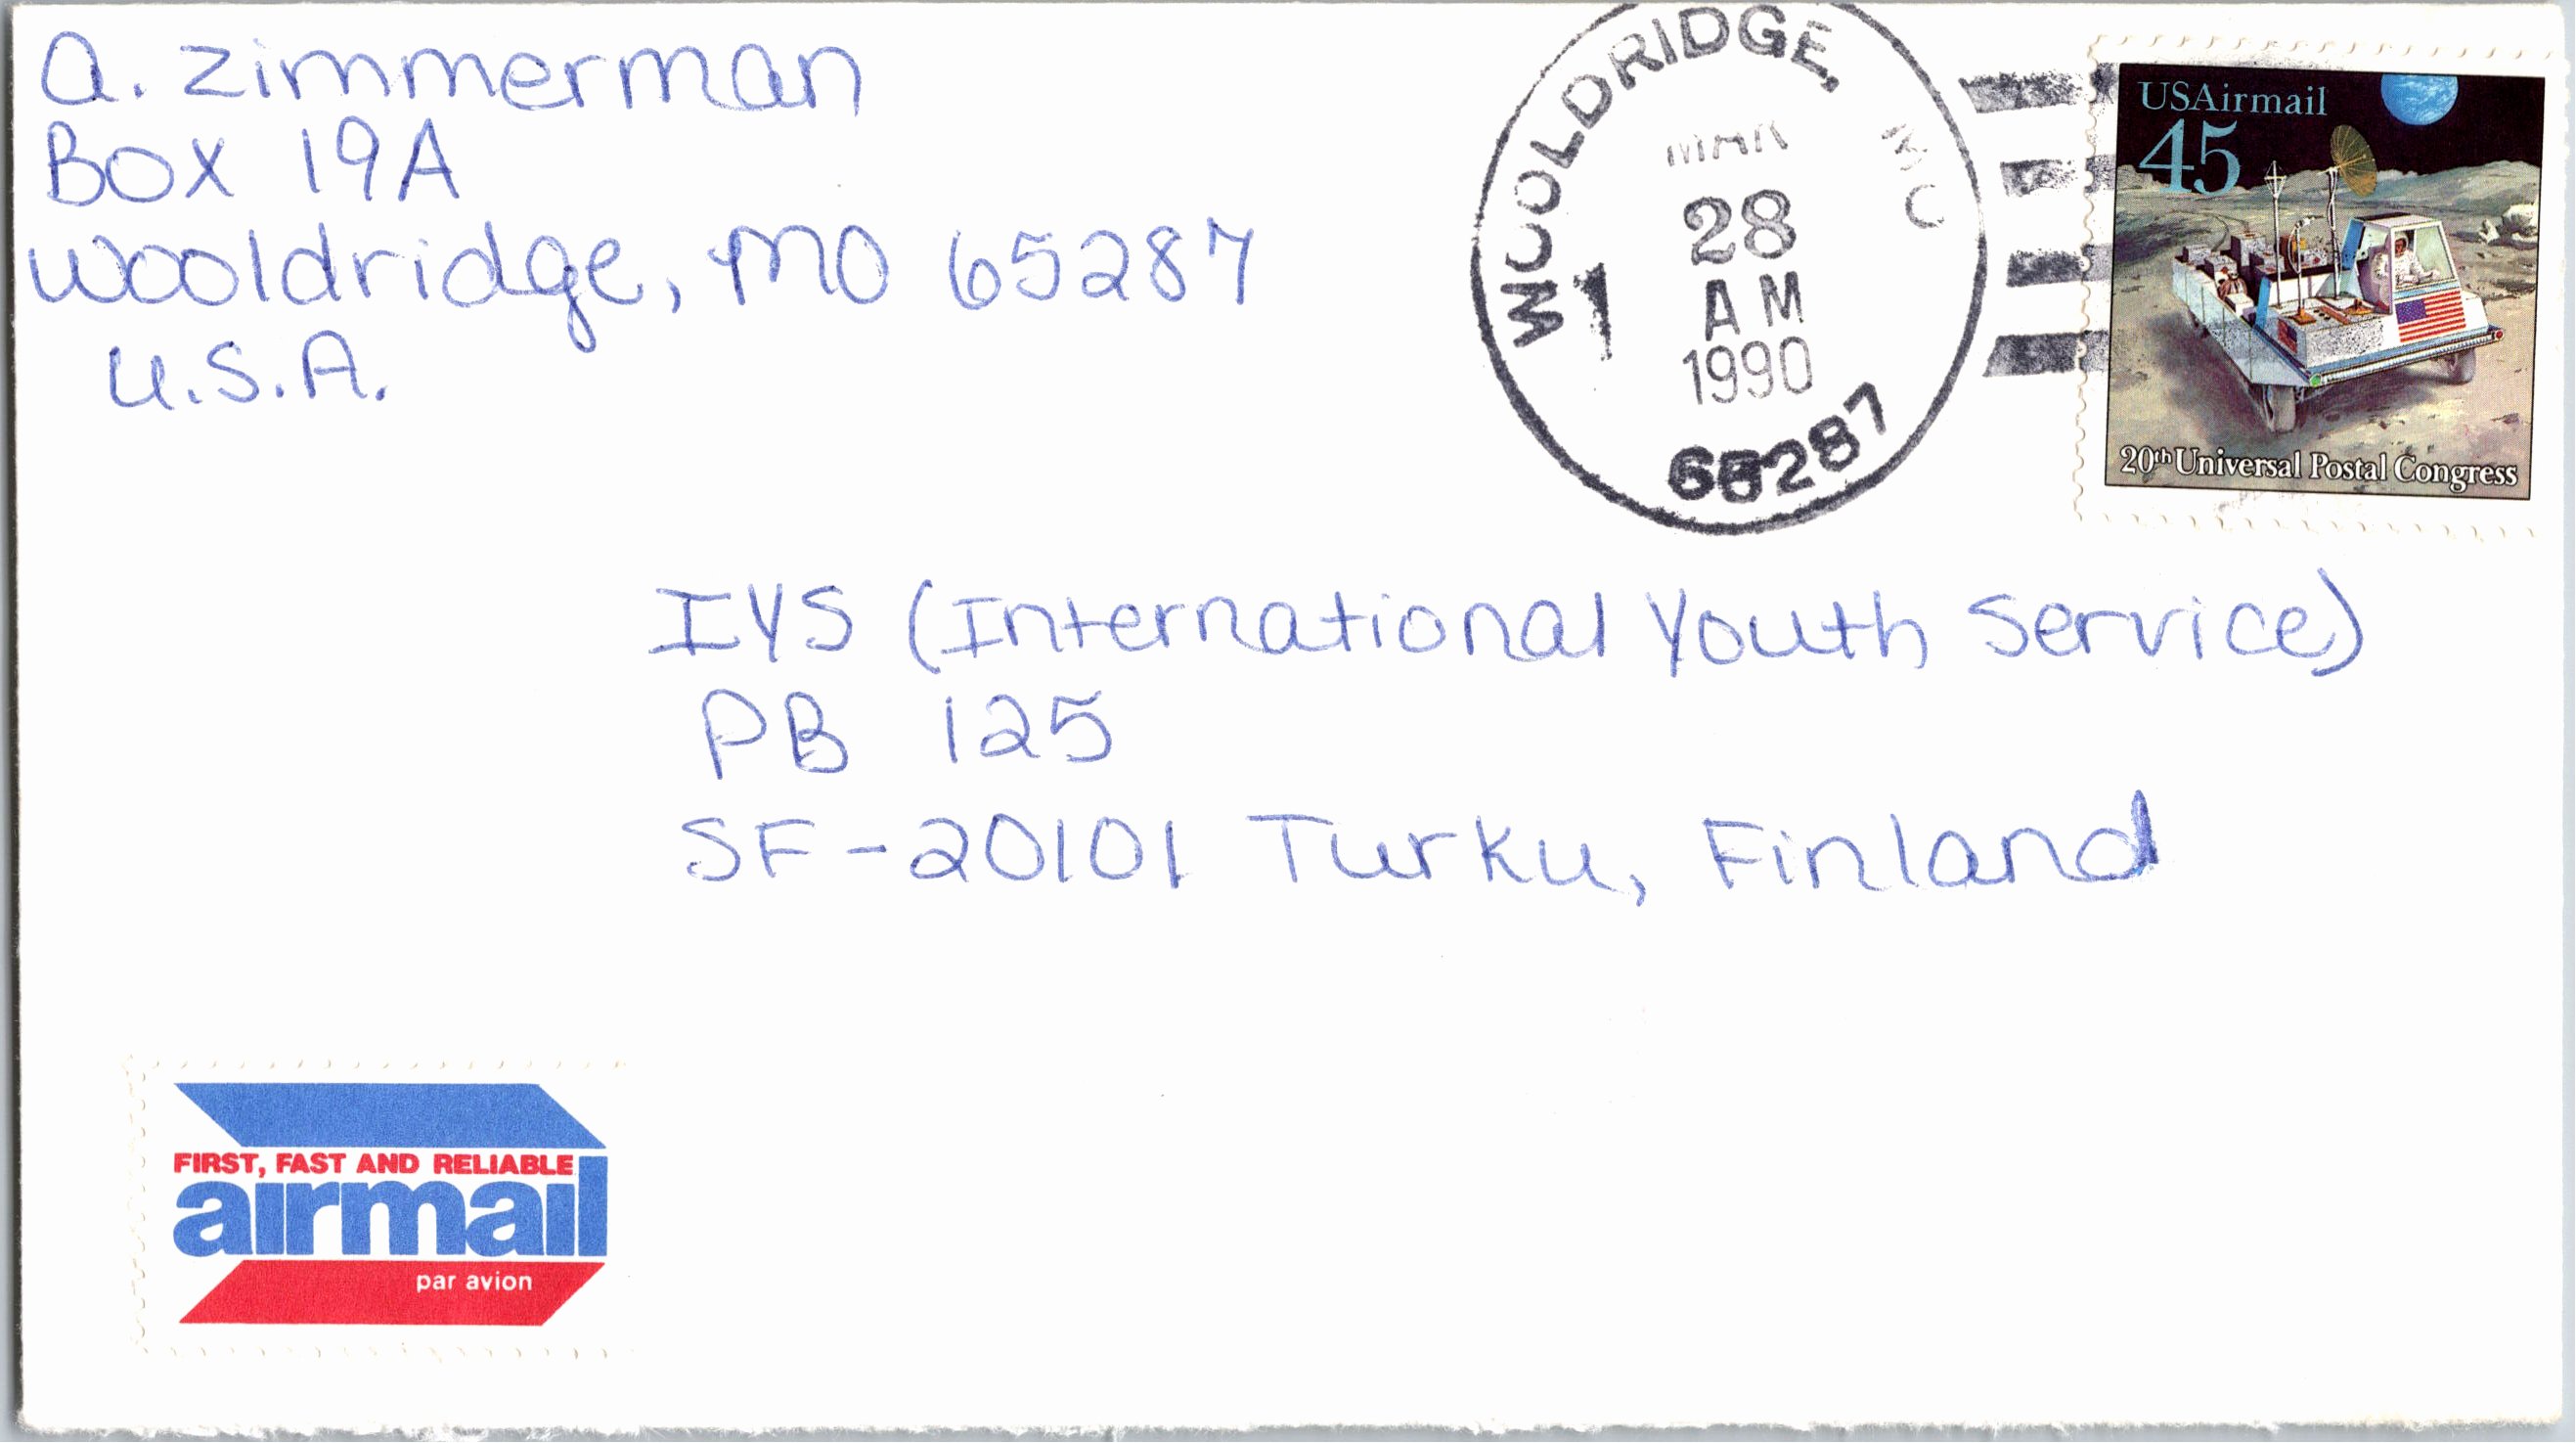 a. zimmerman
Box 19A
Wooldridge, MO 65287
U.S.A.
WOOLDRIDGE, MO
MAR
28
AM
1990
1
65287
USAirmail
45
20th Universal Postal Congress
IYS (International Youth Service)
PB 125
SF-20101 Turku, Finland
FIRST, FAST AND RELIABLE
airmail
par avion